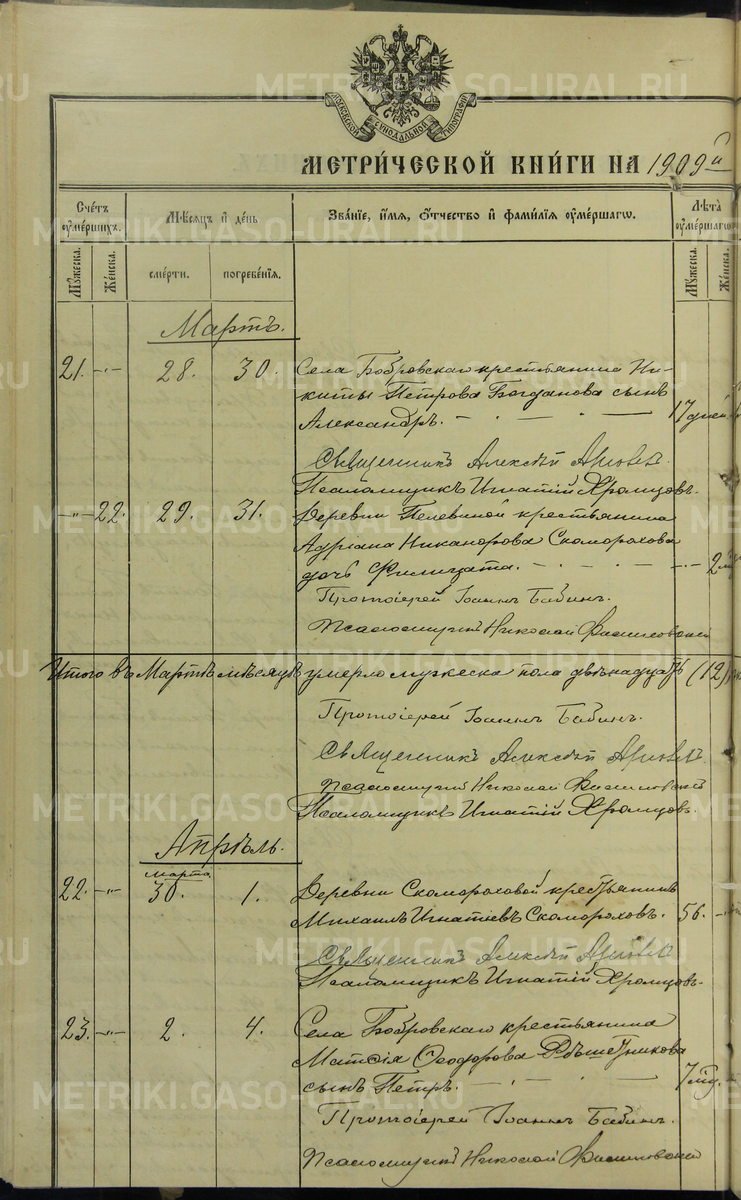 METRIKI.GASO-URAL.RU
МОСКОВСКОЙ СѴНОДАЛЬНОЙ ТИПОГРАФІИ
МЕТРИ́ЧЕСКОЙ КНИ́ГИ НА 1909й
Сче́тъ ᲂу҆ме́ршихъ.
Мѣ́сяцъ и҆ де́нь
Зва́нїе, и҆́мѧ, ѻ҆́тчество и҆ фами́лїѧ ᲂу҆ме́ршагѡ.
Лѣ́та ᲂу҆ме́ршагѡ
Мꙋ́жеска.
Же́нска.
сме́рти.
погребе́нїѧ.
Мꙋ́жеска.
Же́нска.
Мартъ.
21. -"- 28. 30. Села Бобровскаго крестьянина Ни-
киты Петрова Богданова сынъ
Александръ. 17 дней
Священникъ Алексѣй
Псаломщикъ Игнатій Хромцовъ.
-"- 22. 29. 31. Деревни Пелевиной крестьянина
Адріана Никанорова Скоморохова
дочь Филицата. 2
Протоіерей Іоаннъ Бабинъ.
Псаломщикъ Николай
Итого въ Мартѣ мѣсяцѣ умерло мужеска пола двѣнадцать (12)
Протоіерей Іоаннъ Бабинъ.
Священникъ Алексѣй
Псаломщикъ Николай
Псаломщикъ Игнатій Хромцовъ.
Апрѣль.
Марта
22. -"- 30. 1. Деревни Скомороховой крестьянинъ
Михаилъ Игнатіевъ Скомороховъ. 56. -"-
Священникъ Алексѣй
Псаломщикъ Игнатій Хромцовъ.
23. -"- 2. 4. Села Бобровскаго крестьянина
Матѳія Ѳеодорова Рѣшетникова
сынъ Петръ. 7
Протоіерей Іоаннъ Бабинъ.
Псаломщикъ Николай